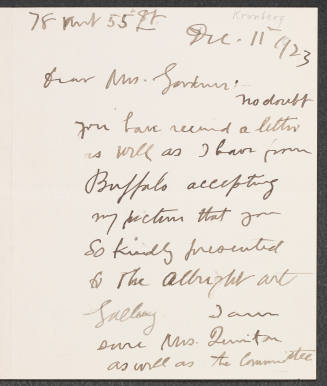 78 West 55th St
Kronberg
Dec. 11 1923
Dear Mrs. Gardner:
no doubt
you have received a letter
as well as I have from
Buffalo accepting
my picture that you
so kindly presented
to the Albright art
Gallery I am
sure Mrs. Quinton
as well as the Committee